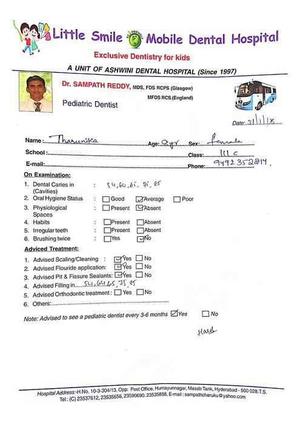 Little Smile Mobile Dental Hospital
Exclusive Dentistry for kids
A UNIT OF ASHWINI DENTAL HOSPITAL (Since 1997)
Dr. SAMPATH REDDY, MDS, FDS RCPS (Glasgow)
MFDS RCS (England)
Pediatric Dentist
Date:
Name: Age: Sex: Female
School: Class: III c
E-mail: Phone:
On Examination:
1. Dental Caries in : 54, 64, 65, 75, 85
(Cavities)
2. Oral Hygiene Status : Good Average Poor
3. Physiological : Present Absent
Spaces
4. Habits : Present Absent
5. Irregular teeth : Present Absent
6. Brushing twice : Yes No
Adviced Treatment:
1. Advised Scaling/Cleaning : Yes No
2. Advised Flouride application: Yes No
3. Advised Pit & Fissure Sealants: Yes No
4. Advised Filling in 54, 64, 65, 75, 85
5. Advised Orthodontic treatment : Yes No
6. Others:
Note: Advised to see a pediatric dentist every 3-6 months Yes No
Hospital Address: H.No. 10-3-304/13, Opp. Post Office, Humayunnagar, Masab Tank, Hyderabad - 500 028 T.S.